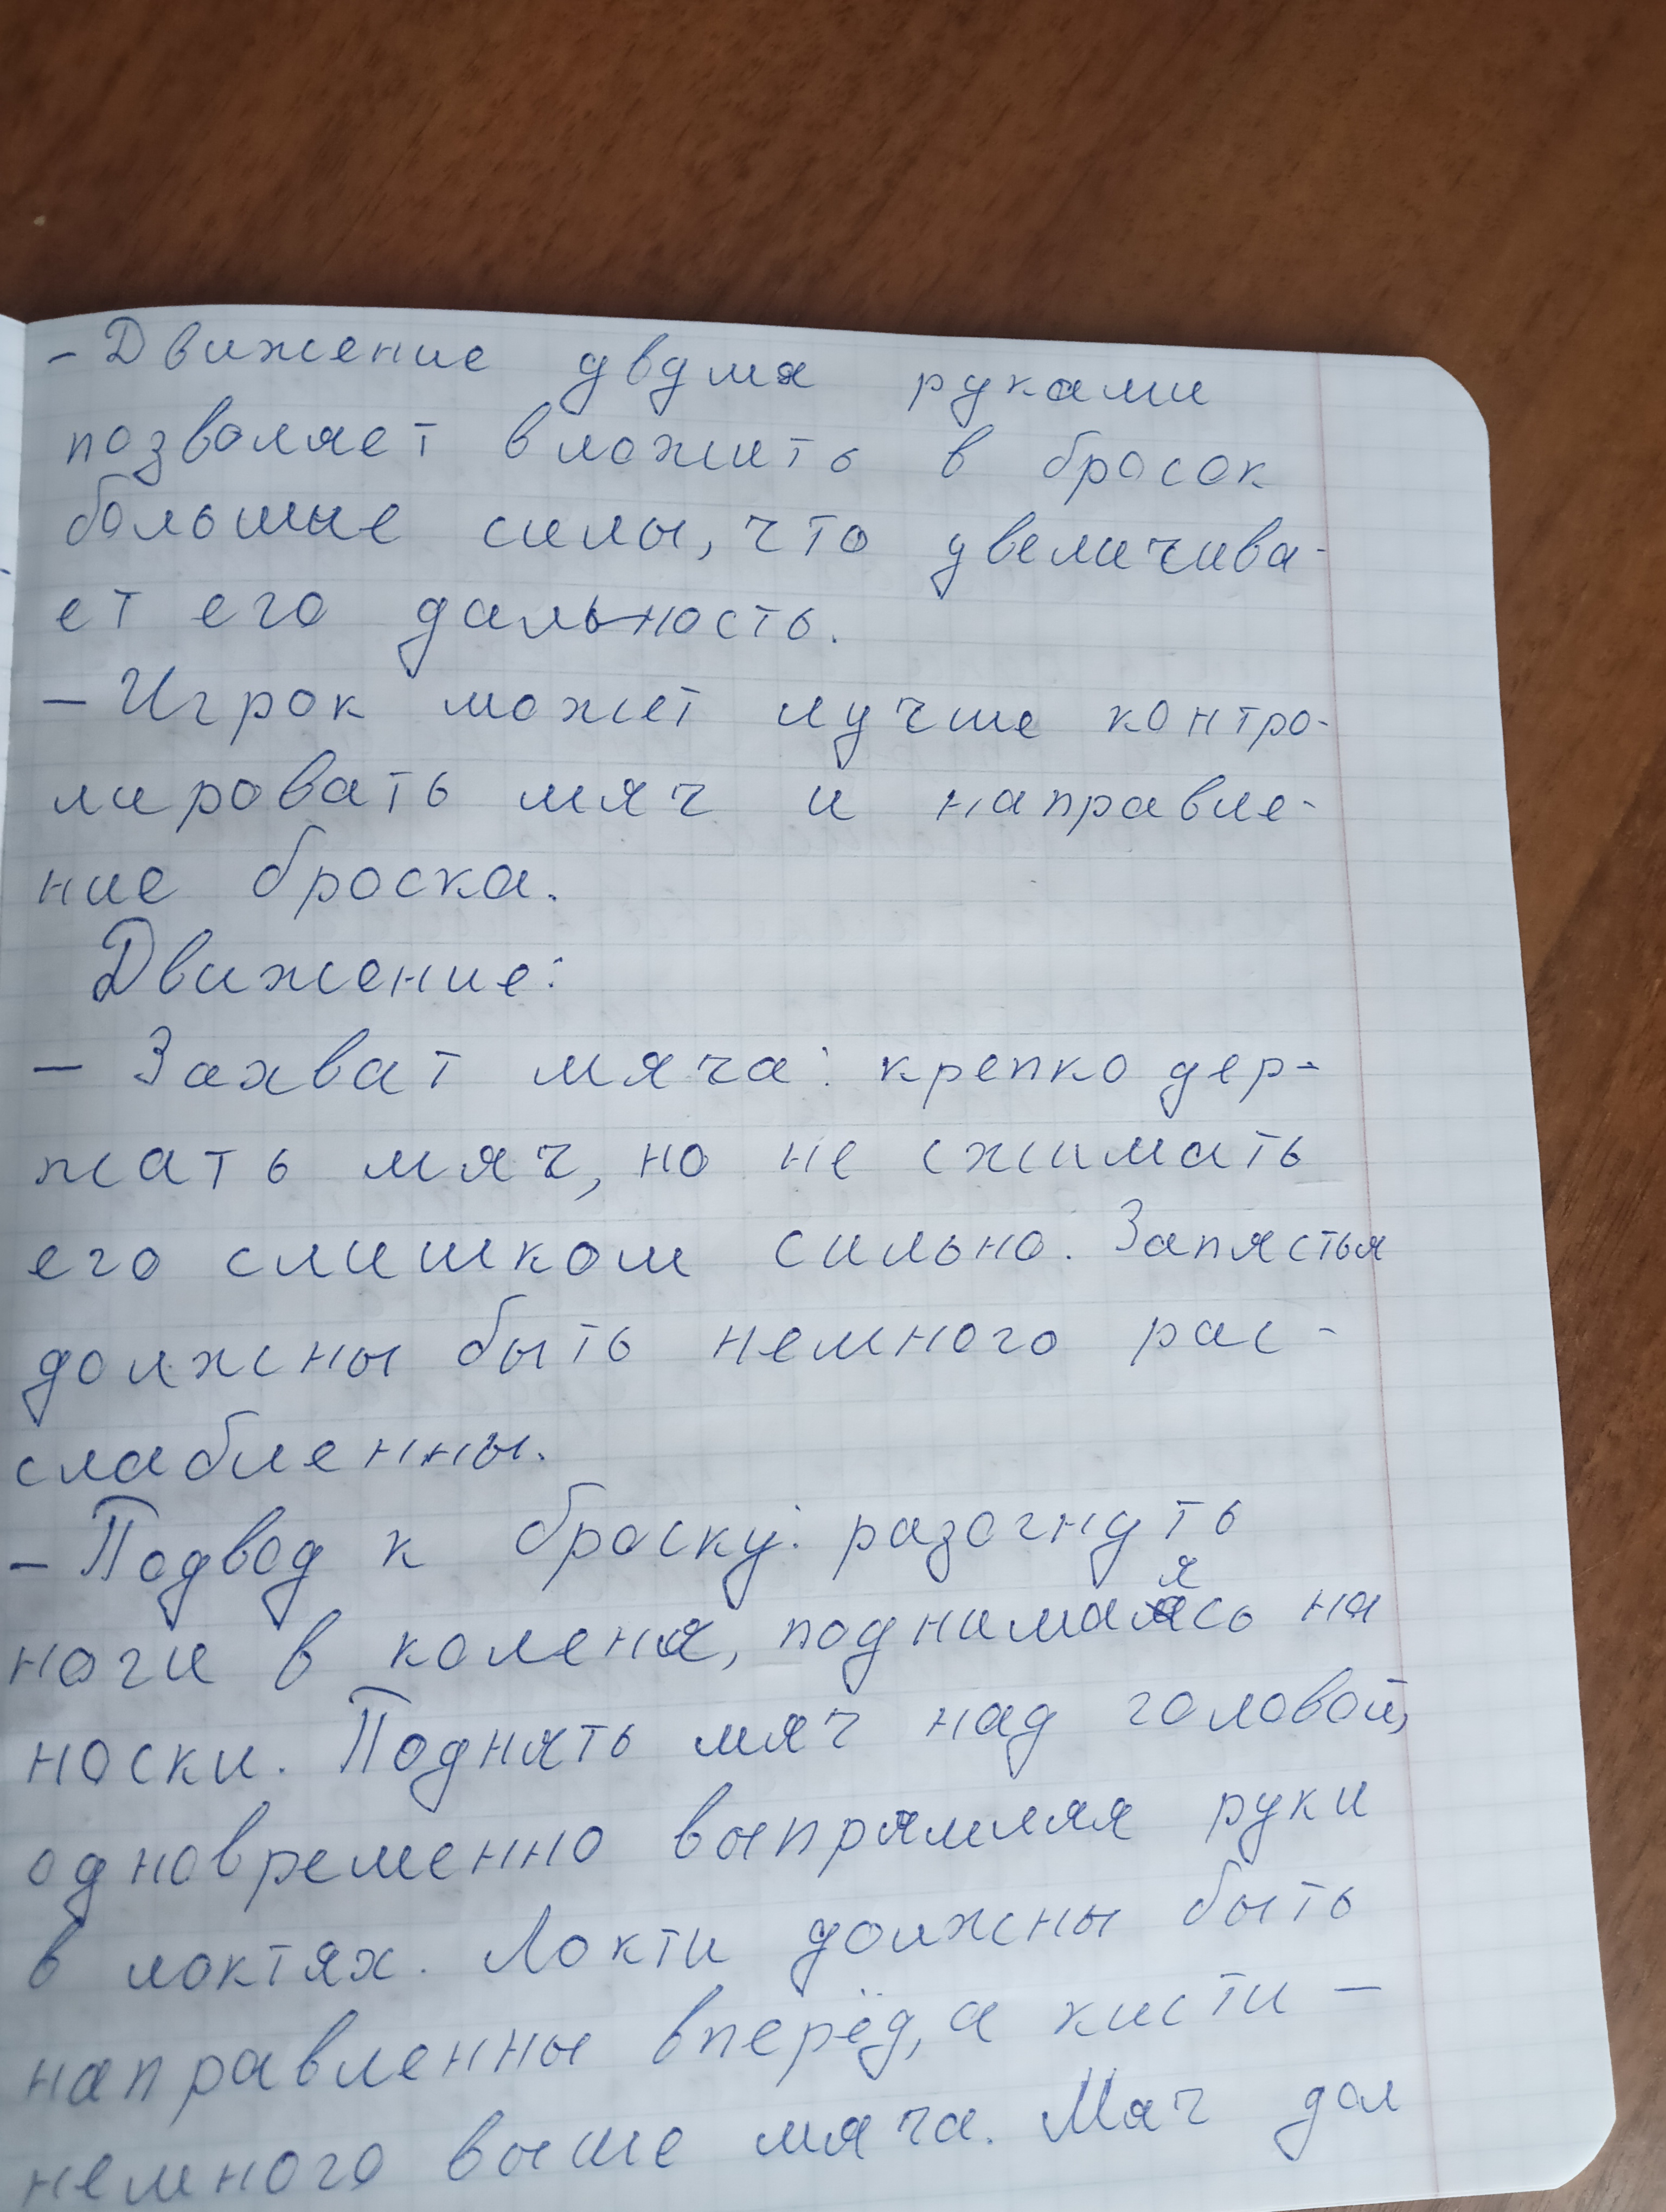 - Движение двумя руками
позволяет вложить в бросок
больше силы, что увеличива-
ет его дальность.
- Игрок может лучше контро-
лировать мяч и направле-
ние броска.
Движение:
- Захват мяча: крепко дер-
жать мяч, но не сжимать
его слишком сильно. Запястья
должны быть немного рас-
слабленны.
- Подвод к броску: разогнуть
ноги в коленя, поднимаясь на
носки. Поднять мяч над головой,
одновременно выпрямляя руки
в локтях. Локти должны быть
направленны вперёд, а кисти -
немного выше мяча. Мяч дол